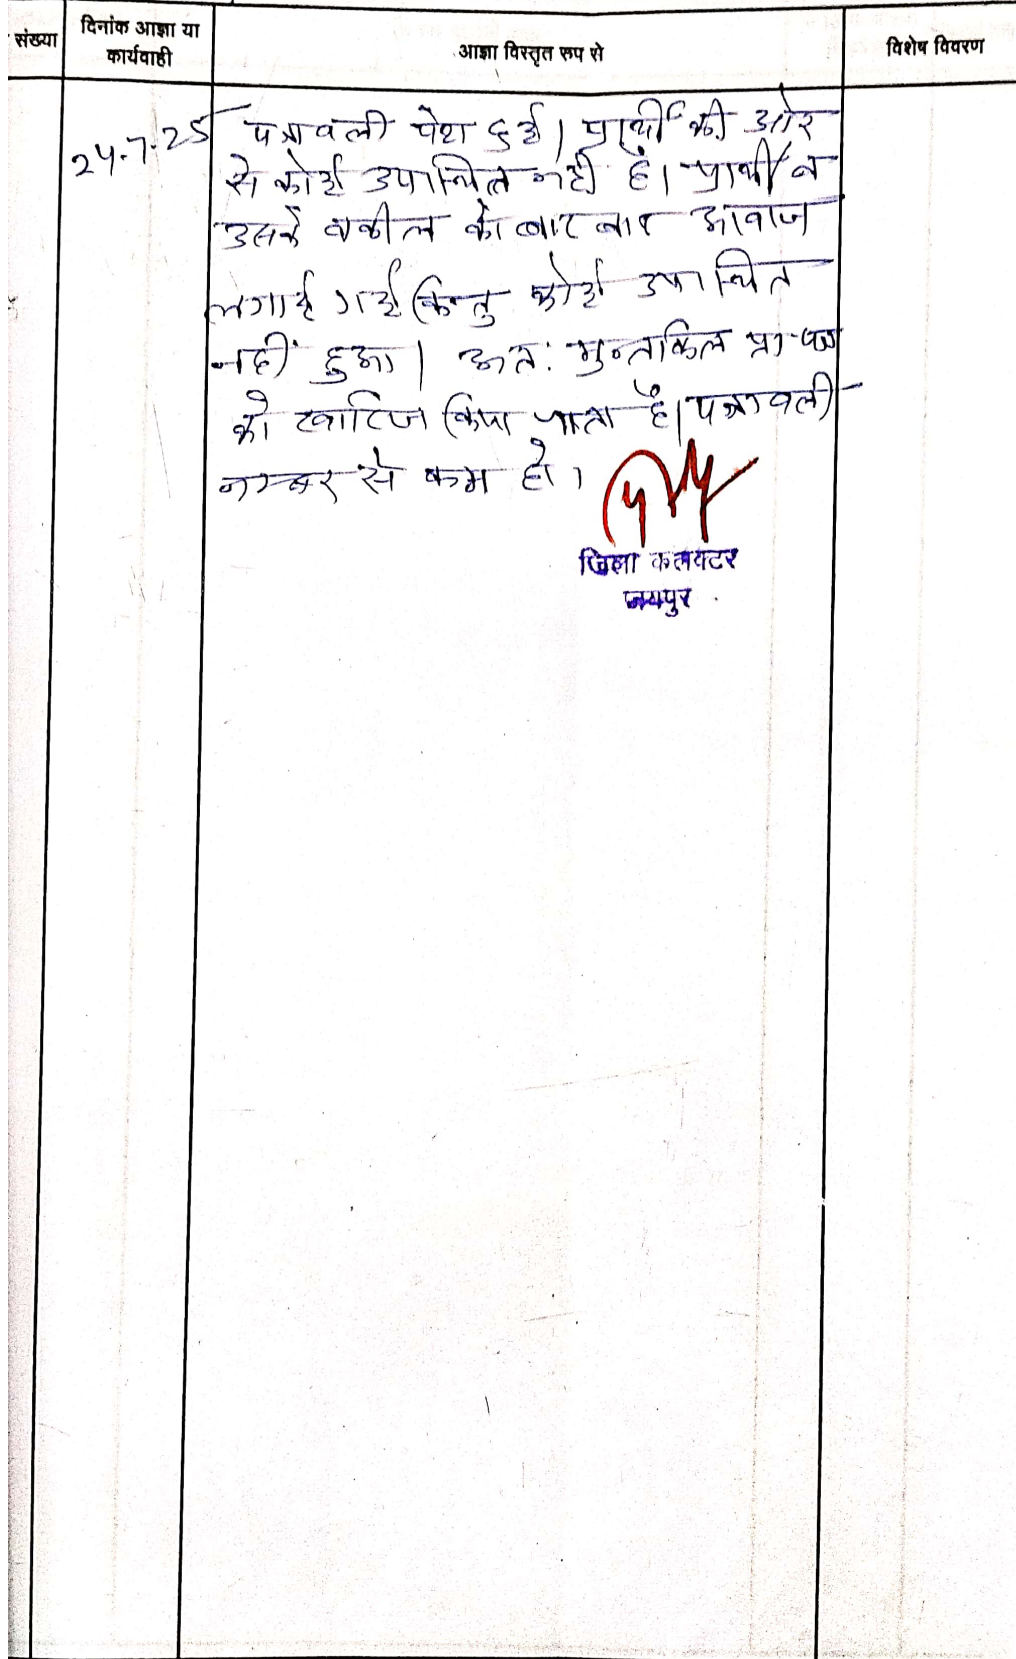 संख्या
दिनांक आज्ञा या
कार्यवाही
आज्ञा विस्तृत रूप से
विशेष विवरण
24.7.25
पत्रावली पेश हुई। प्रार्थी की ओर
से कोई उपस्थित नहीं है। प्रार्थी व
उसके वकील को बार बार आवाज
लगाई गई किन्तु कोई उपस्थित
नहीं हुआ। अत: मुन्तकिल प्रा-पत्र
को खारिज किया जाता है। पत्रावली
नम्बर से कम हो।
जिला कलक्टर
जयपुर